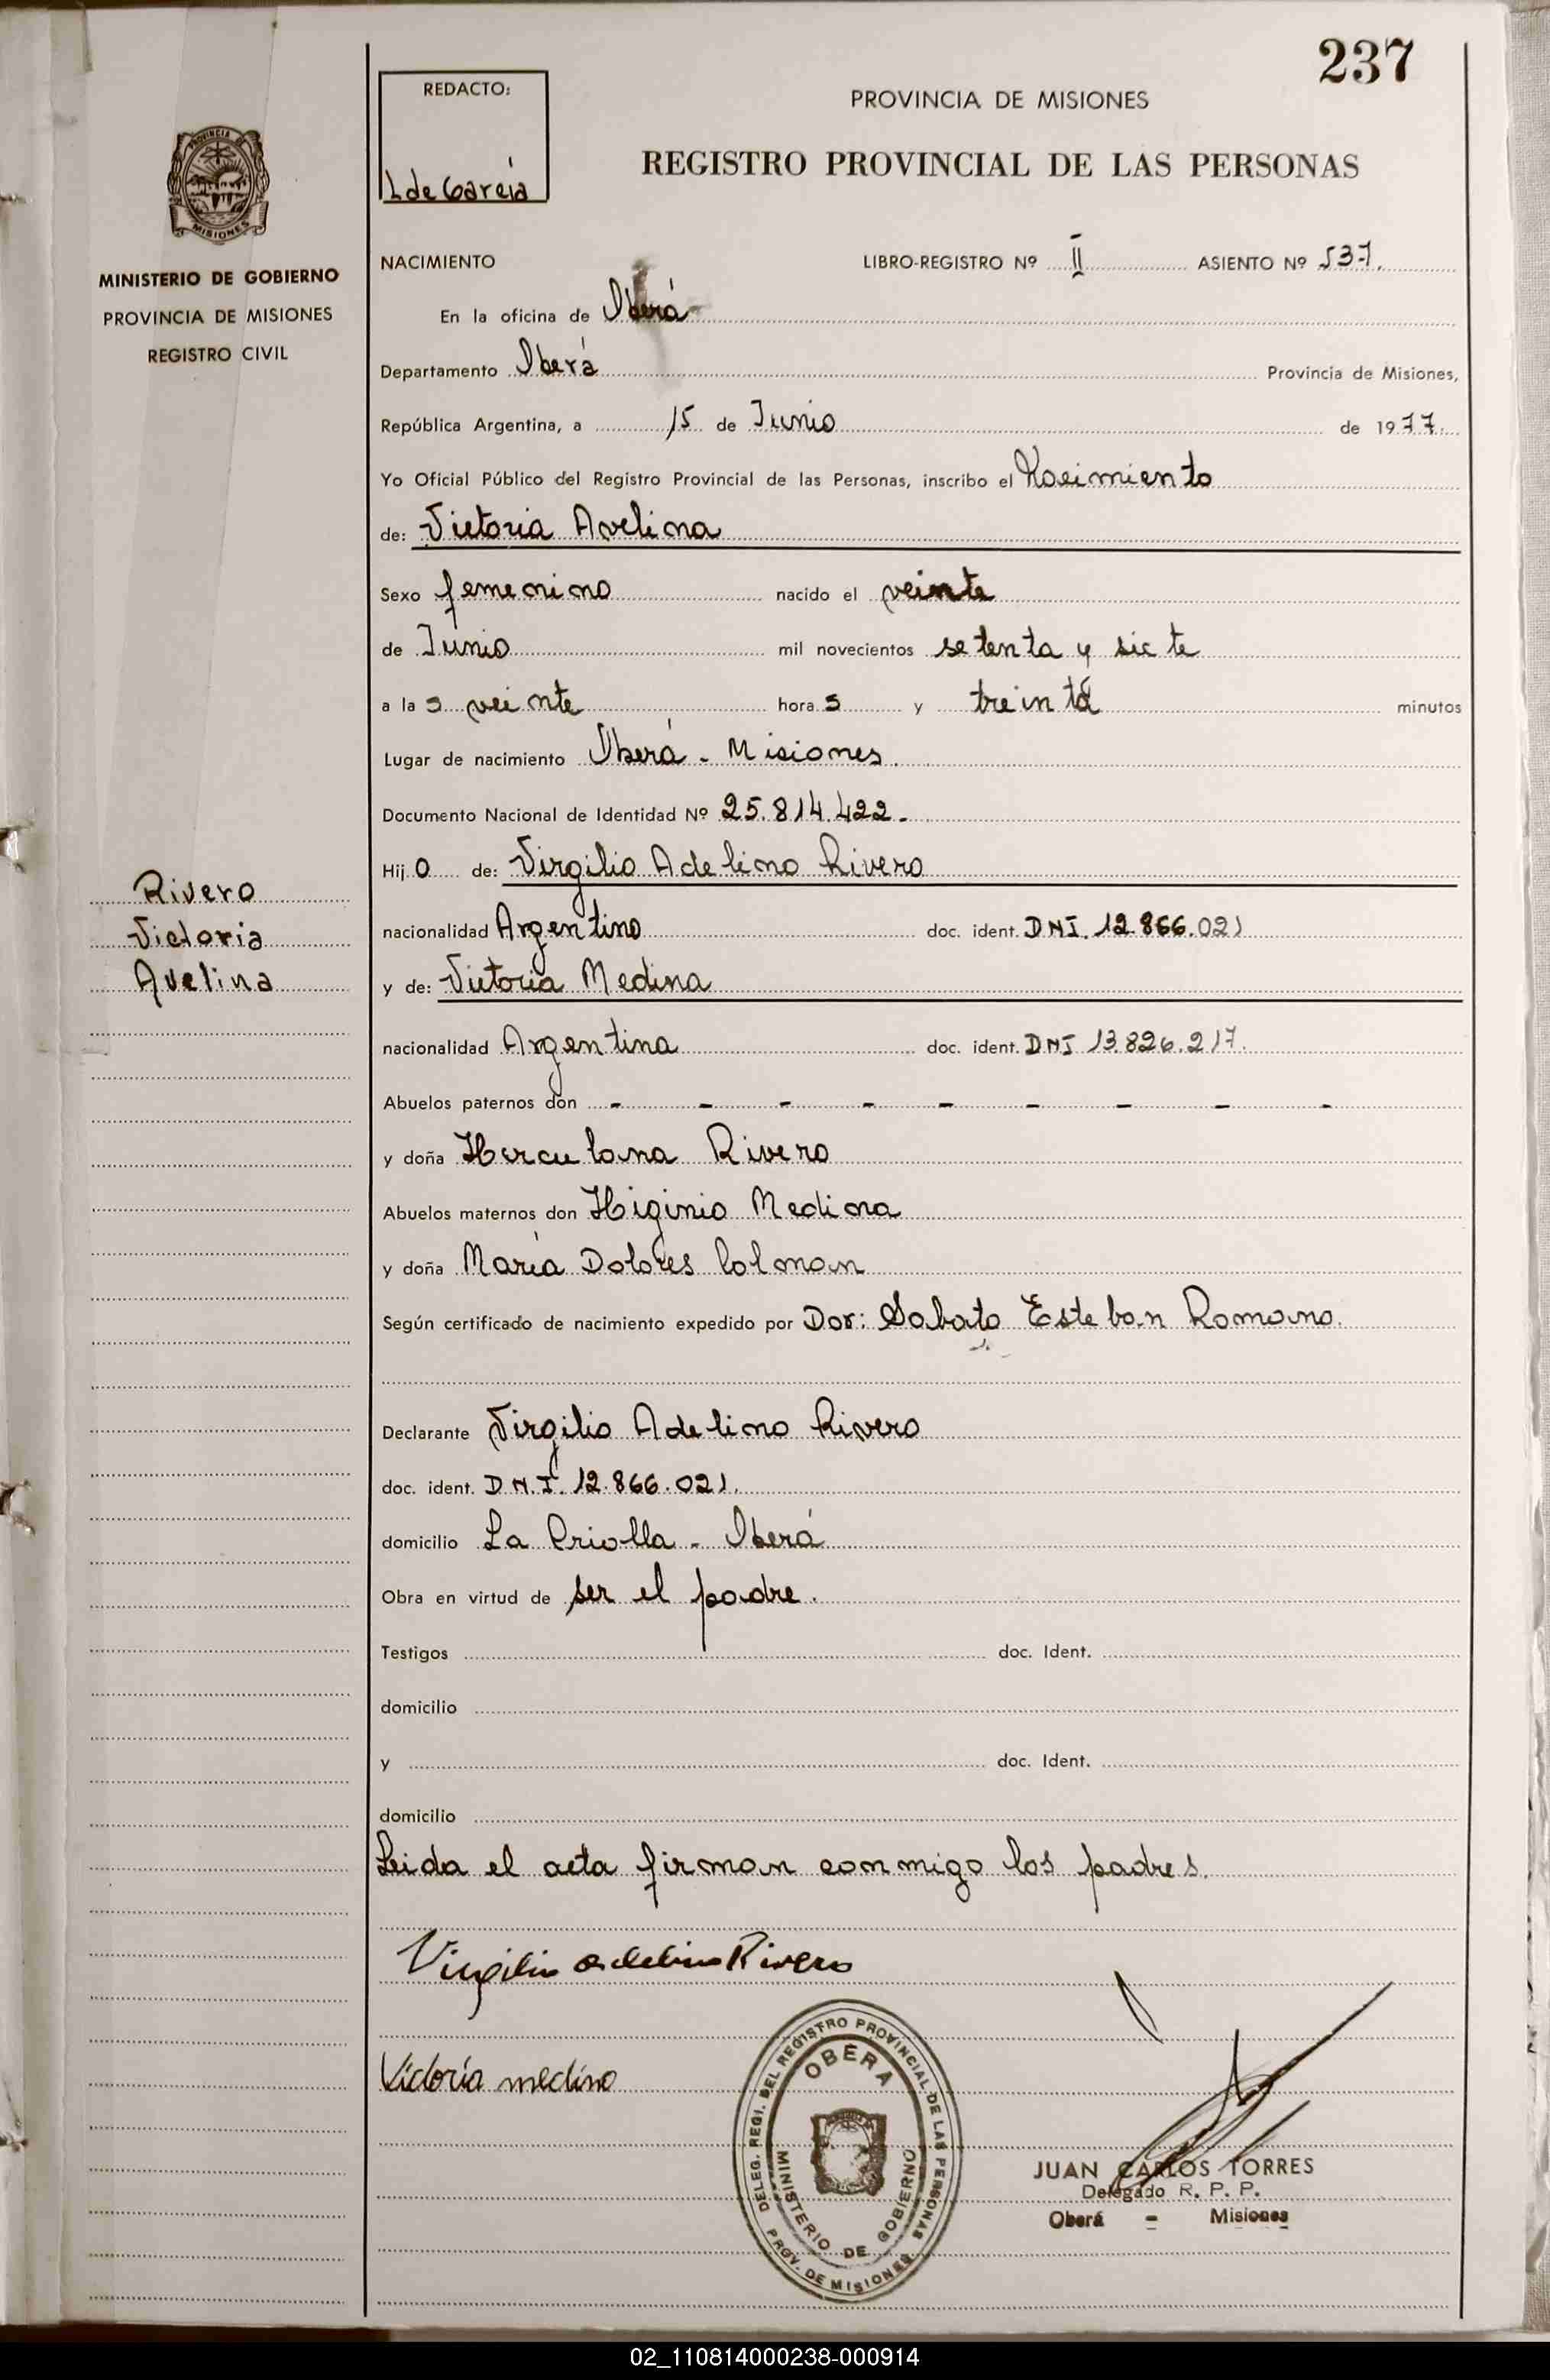 237
REDACTO:
L de García
PROVINCIA DE MISIONES
REGISTRO PROVINCIAL DE LAS PERSONAS
MINISTERIO DE GOBIERNO
PROVINCIA DE MISIONES
REGISTRO CIVIL
NACIMIENTO LIBRO-REGISTRO Nº II ASIENTO Nº 537.
En la oficina de Oberá
Departamento Oberá Provincia de Misiones,
República Argentina, a 15 de Junio de 1977.
Yo Oficial Público del Registro Provincial de las Personas, inscribo el Nacimiento
de: Victoria Avelina
Sexo femenino nacido el veinte
de Junio mil novecientos setenta y siete
a las veinte horas y treinta minutos
Lugar de nacimiento Oberá - Misiones.
Documento Nacional de Identidad Nº 25.814.422.-
Hijo de: Virgilio Adelino Rivero
Rivero
Victoria
Avelina
nacionalidad Argentino doc. ident. DNI. 12.866.021
y de: Victoria Medina
nacionalidad Argentina doc. ident. DNI 13.826.217.
Abuelos paternos don - - - - - - - - -
y doña Herculana Rivero
Abuelos maternos don Higinio Medina
y doña María Dolores Colman
Según certificado de nacimiento expedido por Dor: Sabato Esteban Romano.
Declarante Virgilio Adelino Rivero
doc. ident. D.N.I. 12.866.021.
domicilio La Criolla - Oberá
Obra en virtud de ser el padre.
Testigos doc. Ident.
domicilio
y doc. Ident.
domicilio
Leida el acta firman conmigo los padres.
Virgilio adelino Rivero
Victoria medina
DELEG. REGI. DEL REGISTRO PROVINCIAL DE LAS PERSONAS
OBERA
MINISTERIO DE GOBIERNO
PROV. DE MISIONES
JUAN CARLOS TORRES
Delegado R. P. P.
Oberá - Misiones
02_110814000238-000914